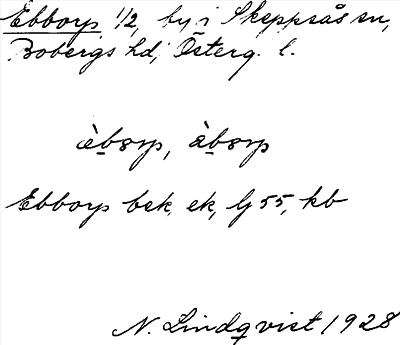 Ebborp 1/2, by i Skeppsås sn,
Bobergs hd, Österg. l.
æ̀b̲orp, àb̲orp
Ebborp bek, ek, lj 55, kb
N. Lindqvist 1928